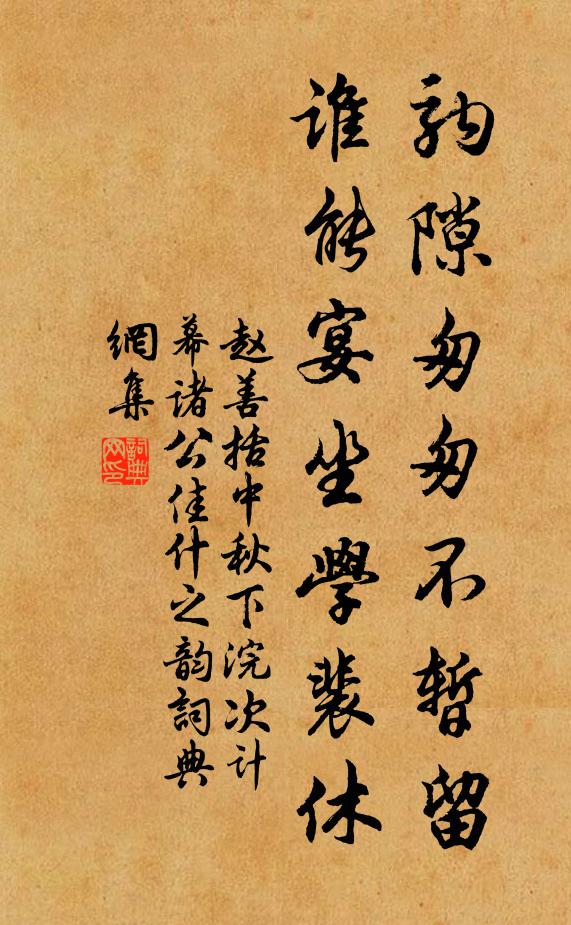 驹隙匆匆不暫留
谁能宴坐學裴休
赵善括中秋下浣次计
幕诸公佳什之韵詞典
網集
詞典网印